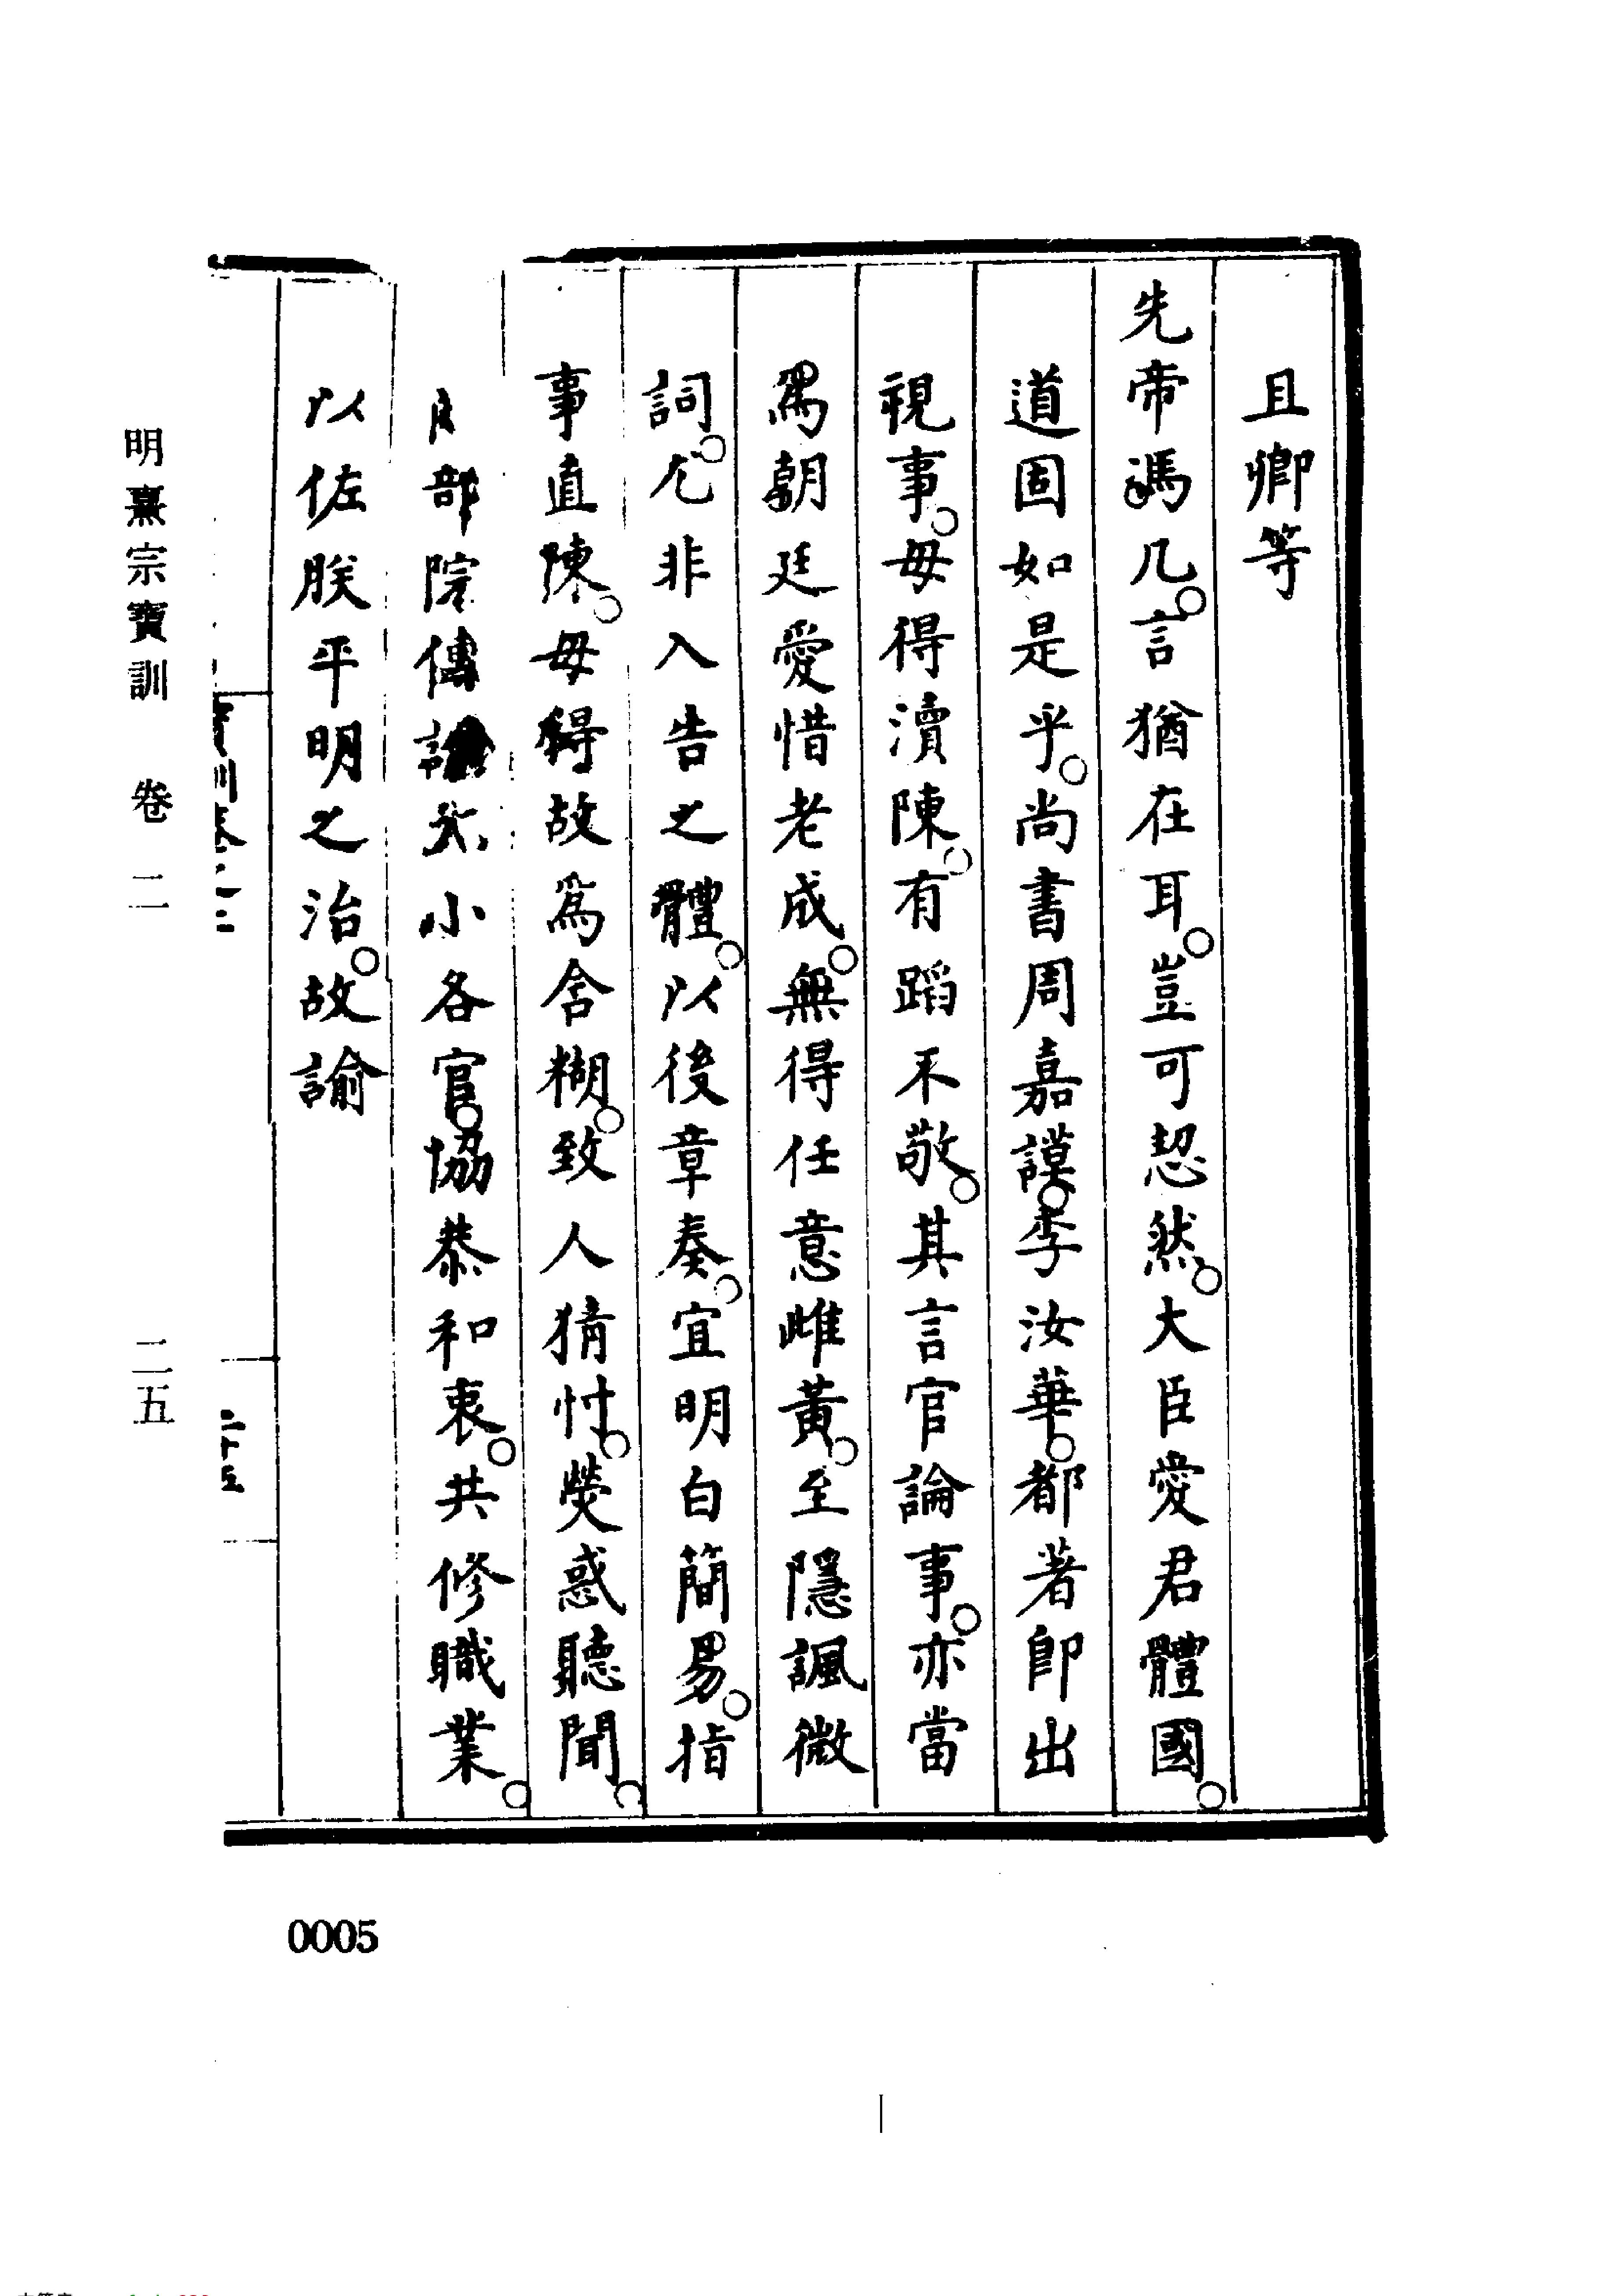 且卿等
先帝馮几言猶在耳豈可恝然大臣愛君體國
道固如是乎尚書周嘉謨李汝華都著即出
視事毋得瀆陳有蹈不敬其言官論事亦當
爲朝廷愛惜老成無得任意雌黃至隱諷微
詞尤非入告之體以後章奏宜明白簡易指
事直陳毋得故爲含糊致人猜忖熒惑聽聞
部院傳諭大小各官協恭和衷共修職業
以佐朕平明之治故諭
明熹宗寶訓 卷二 二五
0005